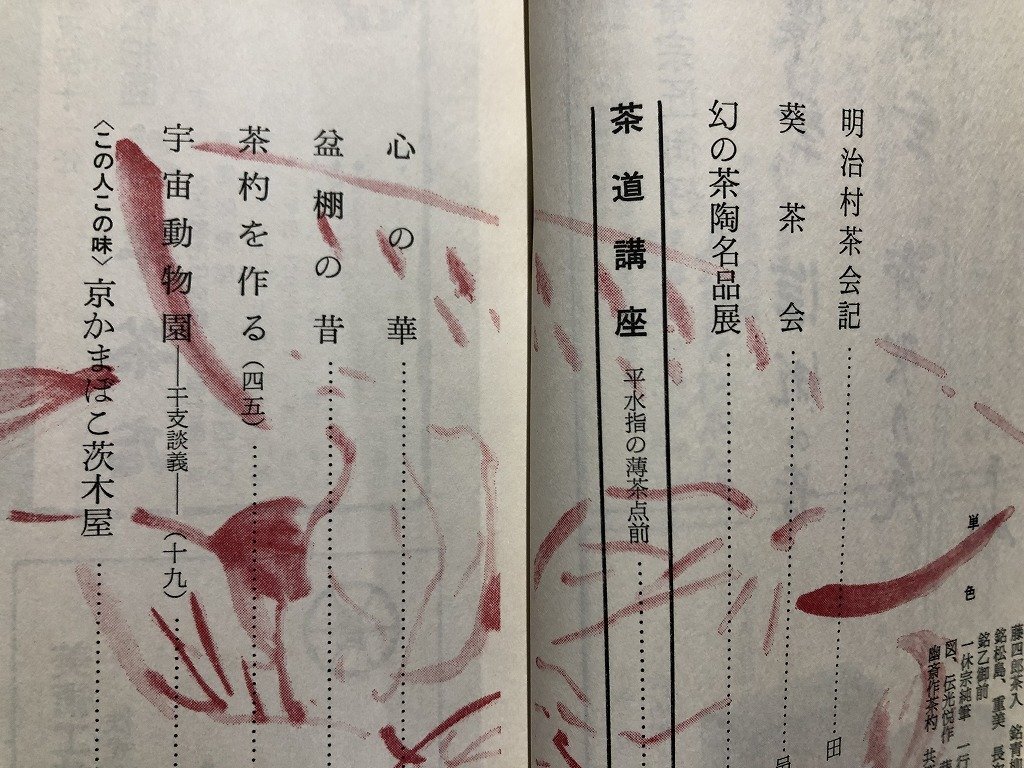 単色
藤四郎茶入 銘青柳
銘松島、重美 長
銘乙御前
一休宗純筆 一行
図、伝光悦作
幽斎作茶杓 共
明治村茶会記……田
葵茶会……
幻の茶陶名品展……
茶道講座 平水指の薄茶点前……
心の華……
盆棚の昔……
茶杓を作る(四五)……
宇宙動物園――干支談義――(十九)……
〈この人この味〉京かまぼこ茨木屋……